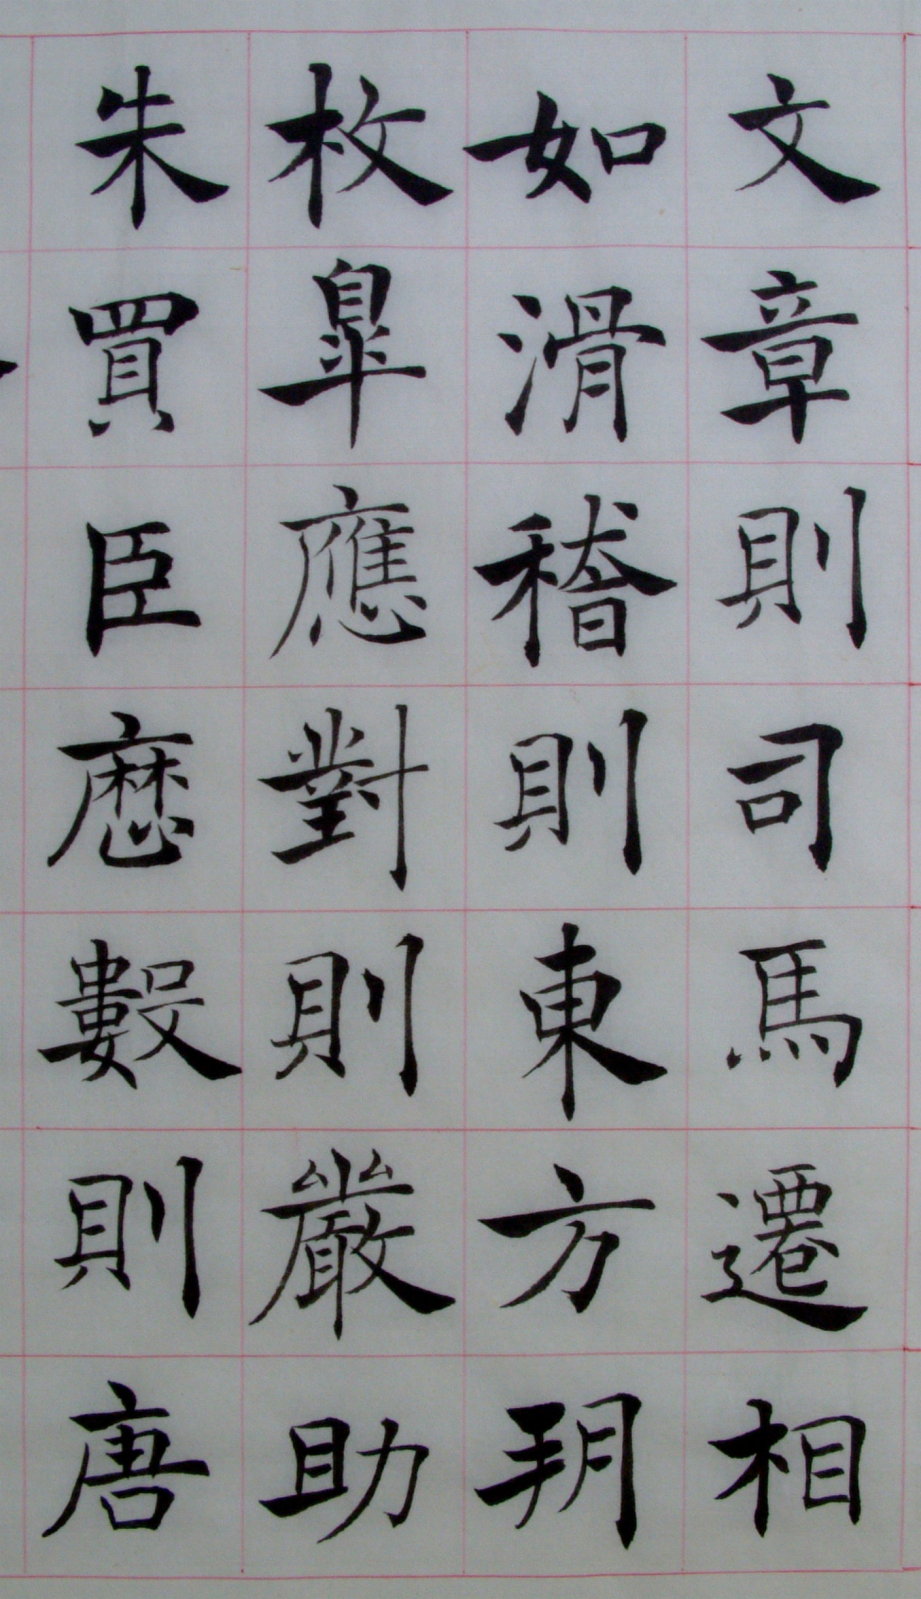 文章則司馬遷相
如滑稽則東方朔
枚皐應對則嚴助
朱買臣歷數則唐